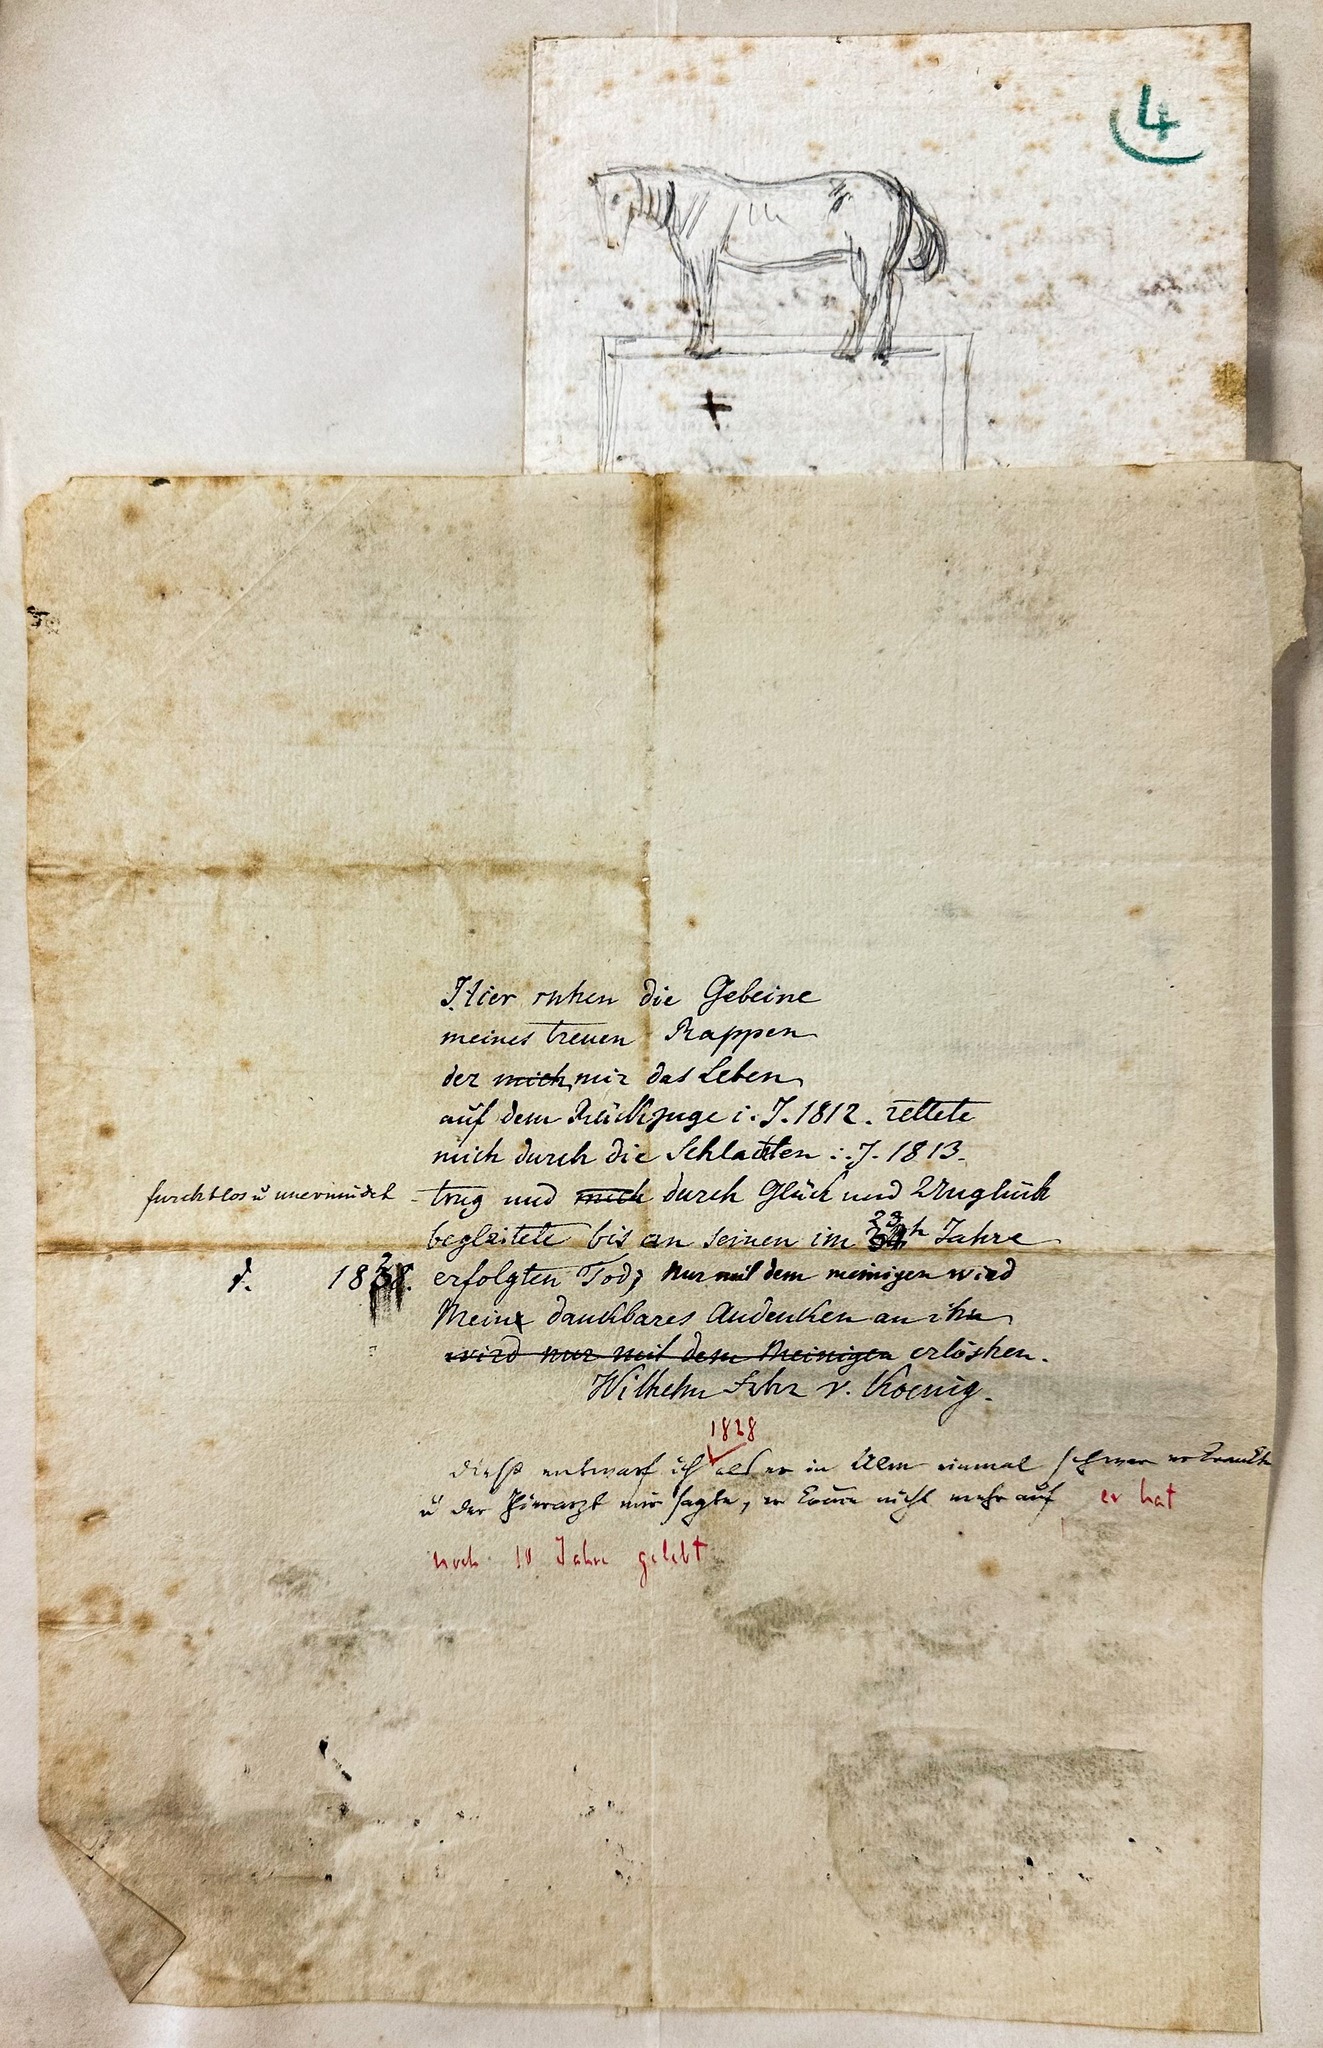 4
Hier ruhen die Gebeine
meines treuen Rappen
der mich mir das Leben
auf dem Rückzuge i. J. 1812. rettete
mich durch die Schlachten i. J. 1813.
furchtlos u unermüdet - trug und mich durch Glück und Unglück
begleitete bis an seinen im 23 Jahre
d. 182 erfolgten Tod; Nur mit dem meinigen wird
Mein dankbares Andenken an ihn
wird nur mit dem Meinigen erlöshen.
Wilhelm Frhr v. Koenig.
1828
dieß entwarf ich als er in Ulm einmal schwer erkrankte
u der Thierarzt mir sagte, er komme nicht mehr auf er hat
noch 10 Jahre gelebt